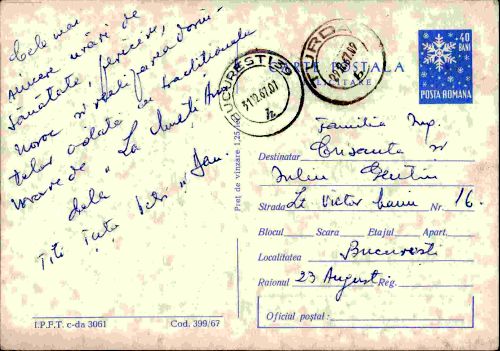 Cele mai
sincere urări de
sănătate, fericire,
noroc și realizarea dorin-
țelor odată cu tradiționala
urare de „La mulți Ani
dela
Titi Tuța
BUCUREȘTI 39
31.12.67.07
TURDA
CARTE POSTALA
MILITARE
40
BANI
POSTA ROMANA
Preț de vînzare 1,25 lei
Familia
Destinatar Crisanta și
Iuliu
Strada Lt Victor Nr. 16.
Blocul Scara Etajul Apart.
Localitatea București
Raionul 23 August Reg.
Oficiul poștal:
I.P.F.T. c-da 3061 Cod. 399/67